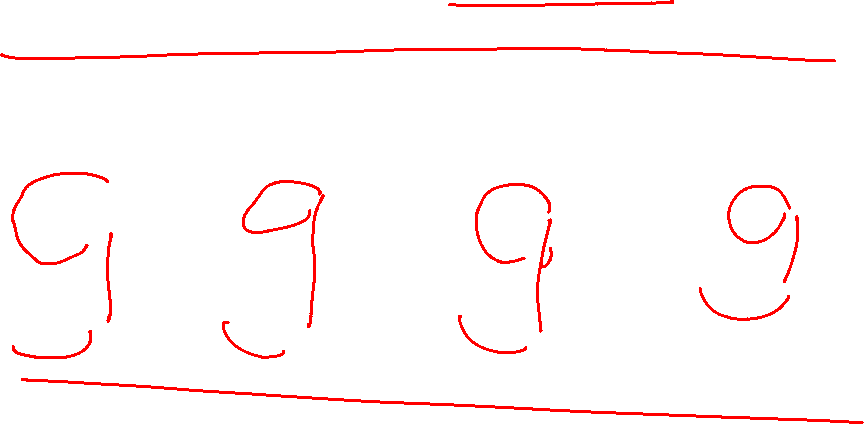 9 9 9 9